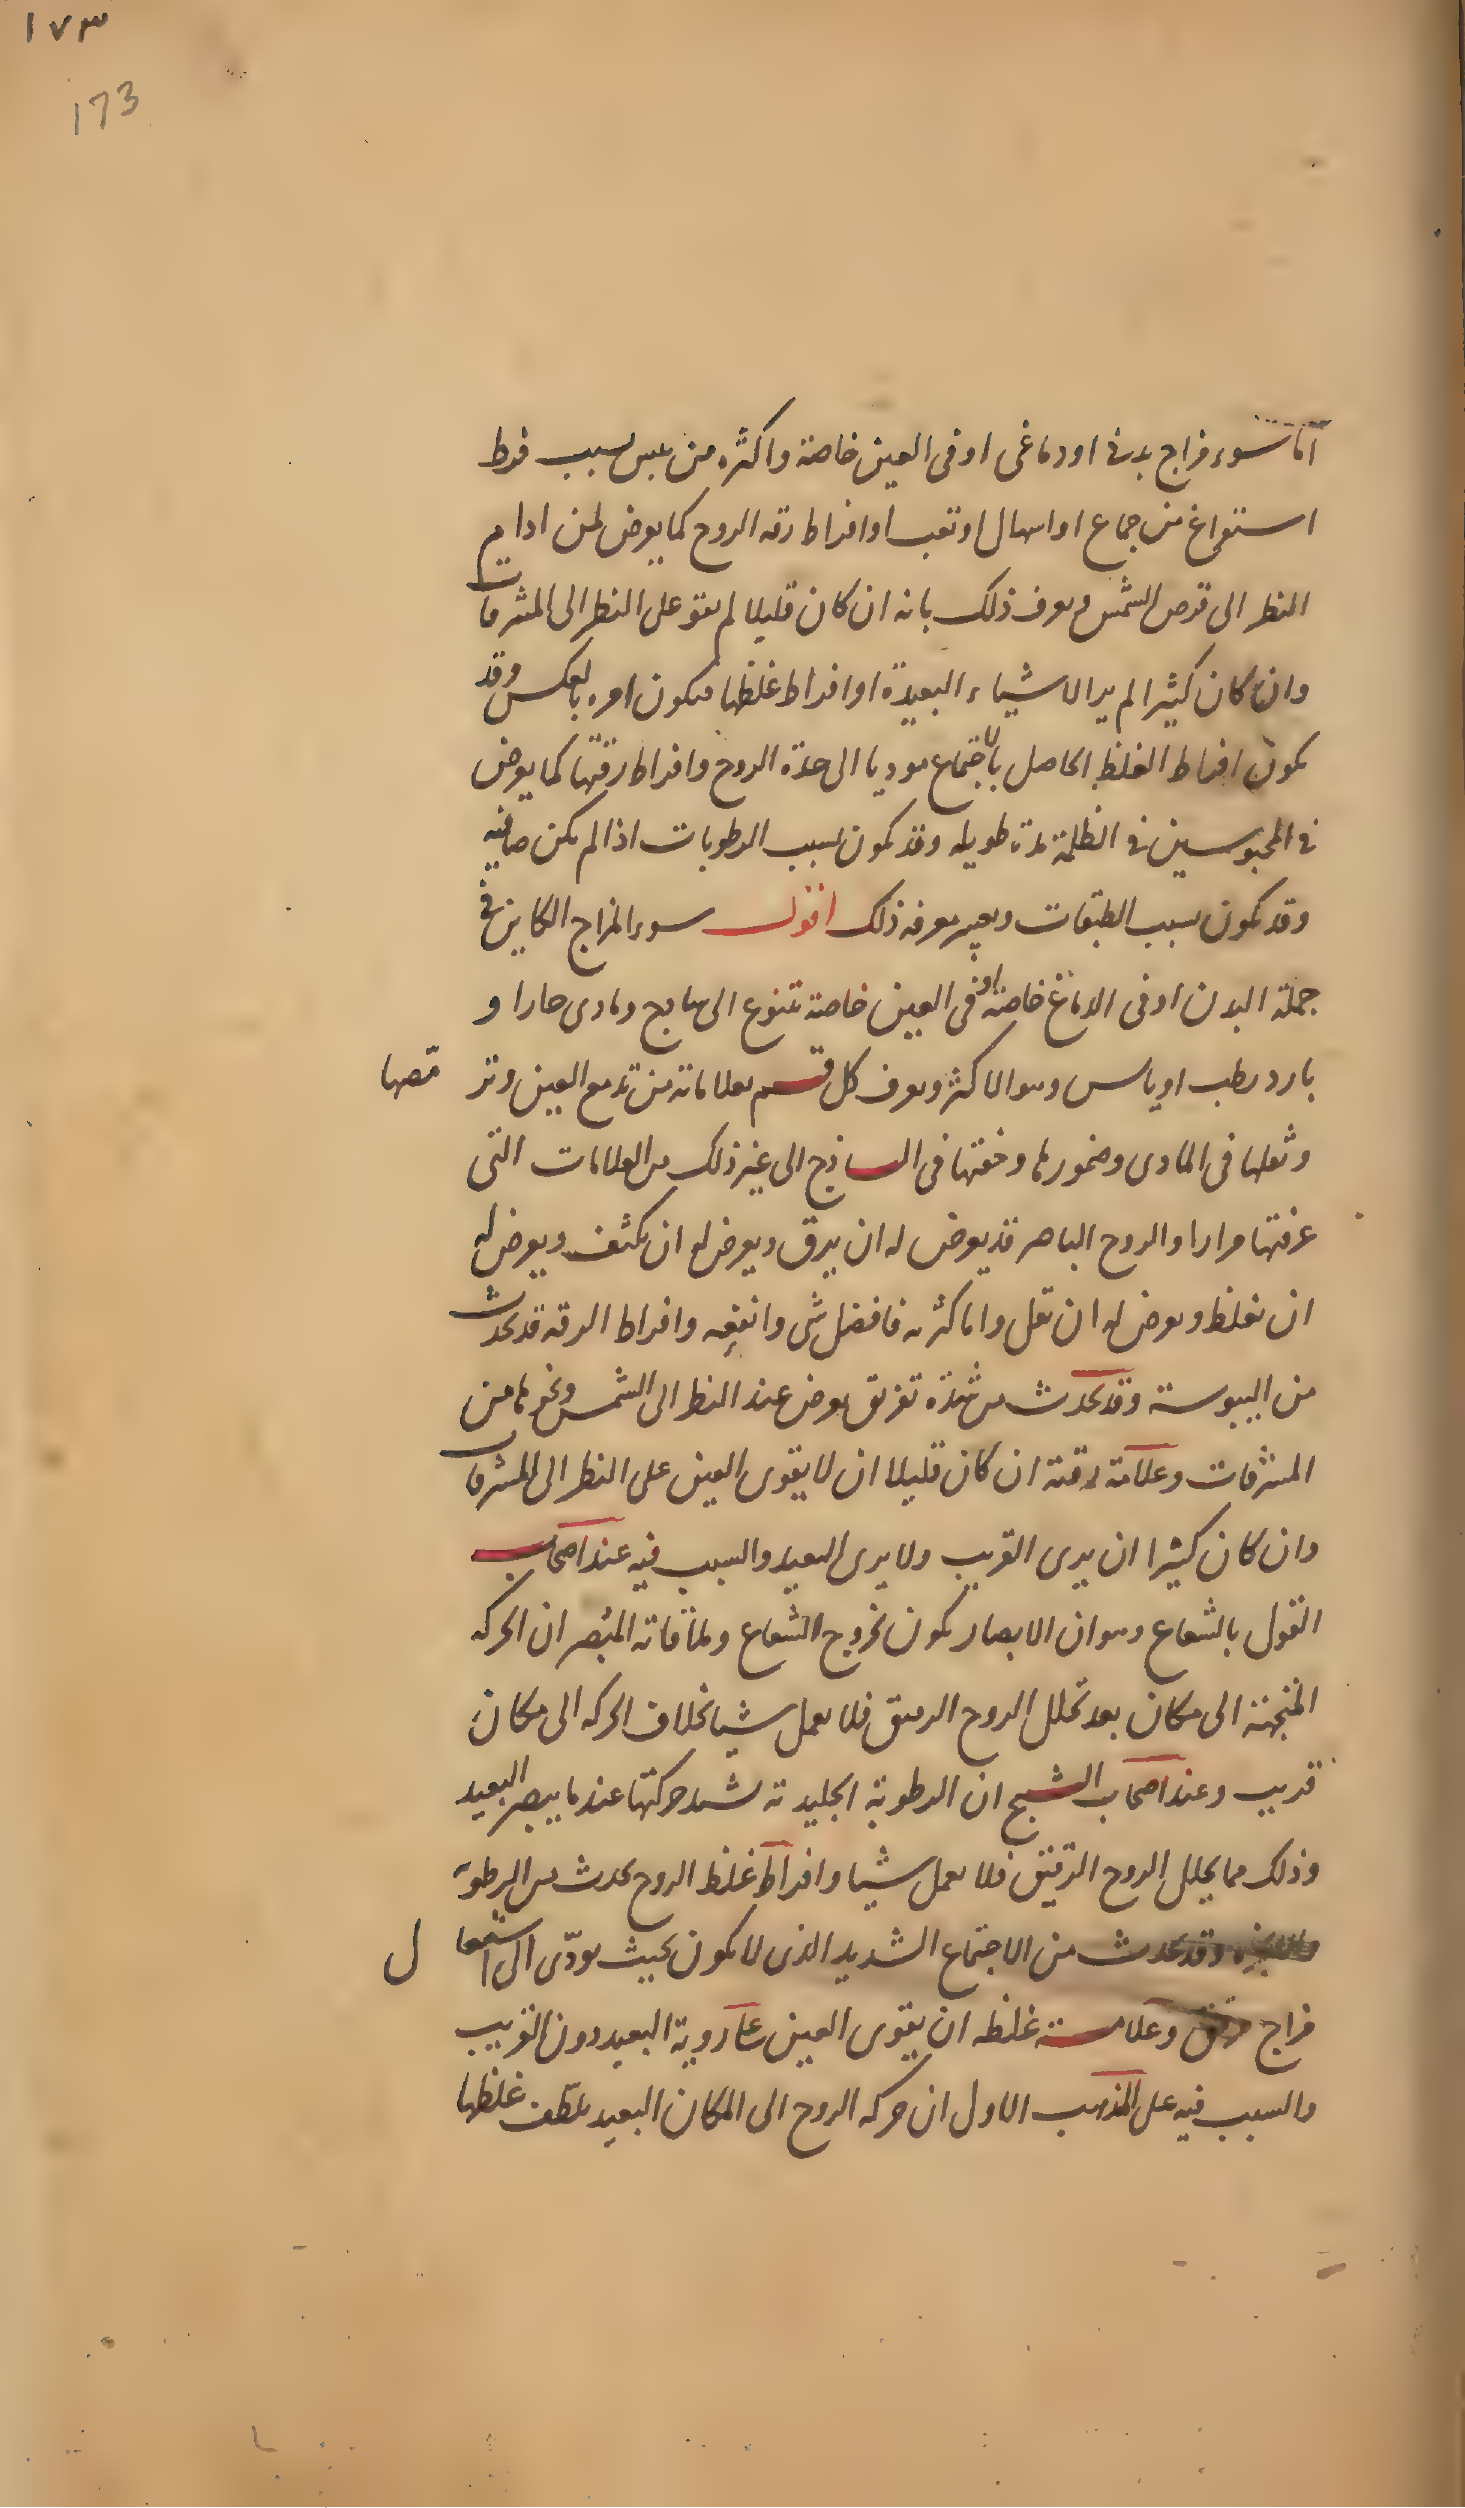 ١٧٣
173
اما سوء مزاج بدنى او دماغى او فى العين خاصة واكثره من يبس بسبب فرط
استفراغ من جماع او اسهال او تعب او افراط رقه الروح كما يعرض لمن ادام
النظر الى قرص الشمس ويعرف ذلك بانه ان كان قليلا لم يقو على النظر الى المشرقات
وان كان كثيرا لم ير الاشياء البعيدة او افراط غلظها فيكون امره بالعكس وقد
يكون افراط الغلظ الحاصل بالاجتماع موديا الى حدة الروح وافراط رقتها كما يعرض
فى المحبوسين فى الظلمة مدة طويله وقد يكون بسبب الرطوبات اذا لم يكن صافيه
وقد يكون بسبب الطبقات ويعسر معرفه ذلك اقول سوء المزاج الكاين فى
جملة البدن او فى الدماغ خاصة او فى العين خاصة يتنوع الى ساذج ومادى حارا و
بارد رطب او يابس وهو الاكثر ويعرف كل قسم بعلاماته من تدمع العين وترمصها
وثقلها فى المادى وضمورها وخفتها فى الساذج الى غير ذلك من العلامات التى
عرفتها مرارا والروح الباصر قد يعرض له ان يرق ويعرض له ان يكثف ويعرض له
ان يغلظ ويعرض له ان يقل واما كثرته فافضل شى وانفعه وافراط الرقه قد يحدث
من اليبوسة وقد يحدث من شدة تفريق يعرض عند النظر الى الشمس ونحوها من
المشرقات وعلامة رقته ان كان قليلا ان لا يقوى العين على النظر الى المشرقات
وان كان كثيرا ان يرى القريب ولا يرى البعيد والسبب فيه عند اصحاب
القول بالشعاع وهو ان الابصار يكون بخروج الشعاع وملاقاته المبصر ان الحركه
المتجهة الى مكان بعيد تحلل الروح الرقيق فلا يعمل شيا بخلاف الحركه الى مكان
قريب وعند اصحاب الشبح ان الرطوبة الجليدية تشتد حركتها عندما يبصر البعيد
وذلك مما يحلل الروح الرقيق فلا يعمل شيا وافراط غلظ الروح يحدث من الرطوبة
وقد يحدث من الاجتماع الشديد الذى لا يكون بحيث يودّى الى استعمال
مزاج مرقق وعلامة غلظه ان يقوى العين على روية البعيد دون القريب
والسبب فيه على المذهب الاول ان حركه الروح الى المكان البعيد يلطف غلظها